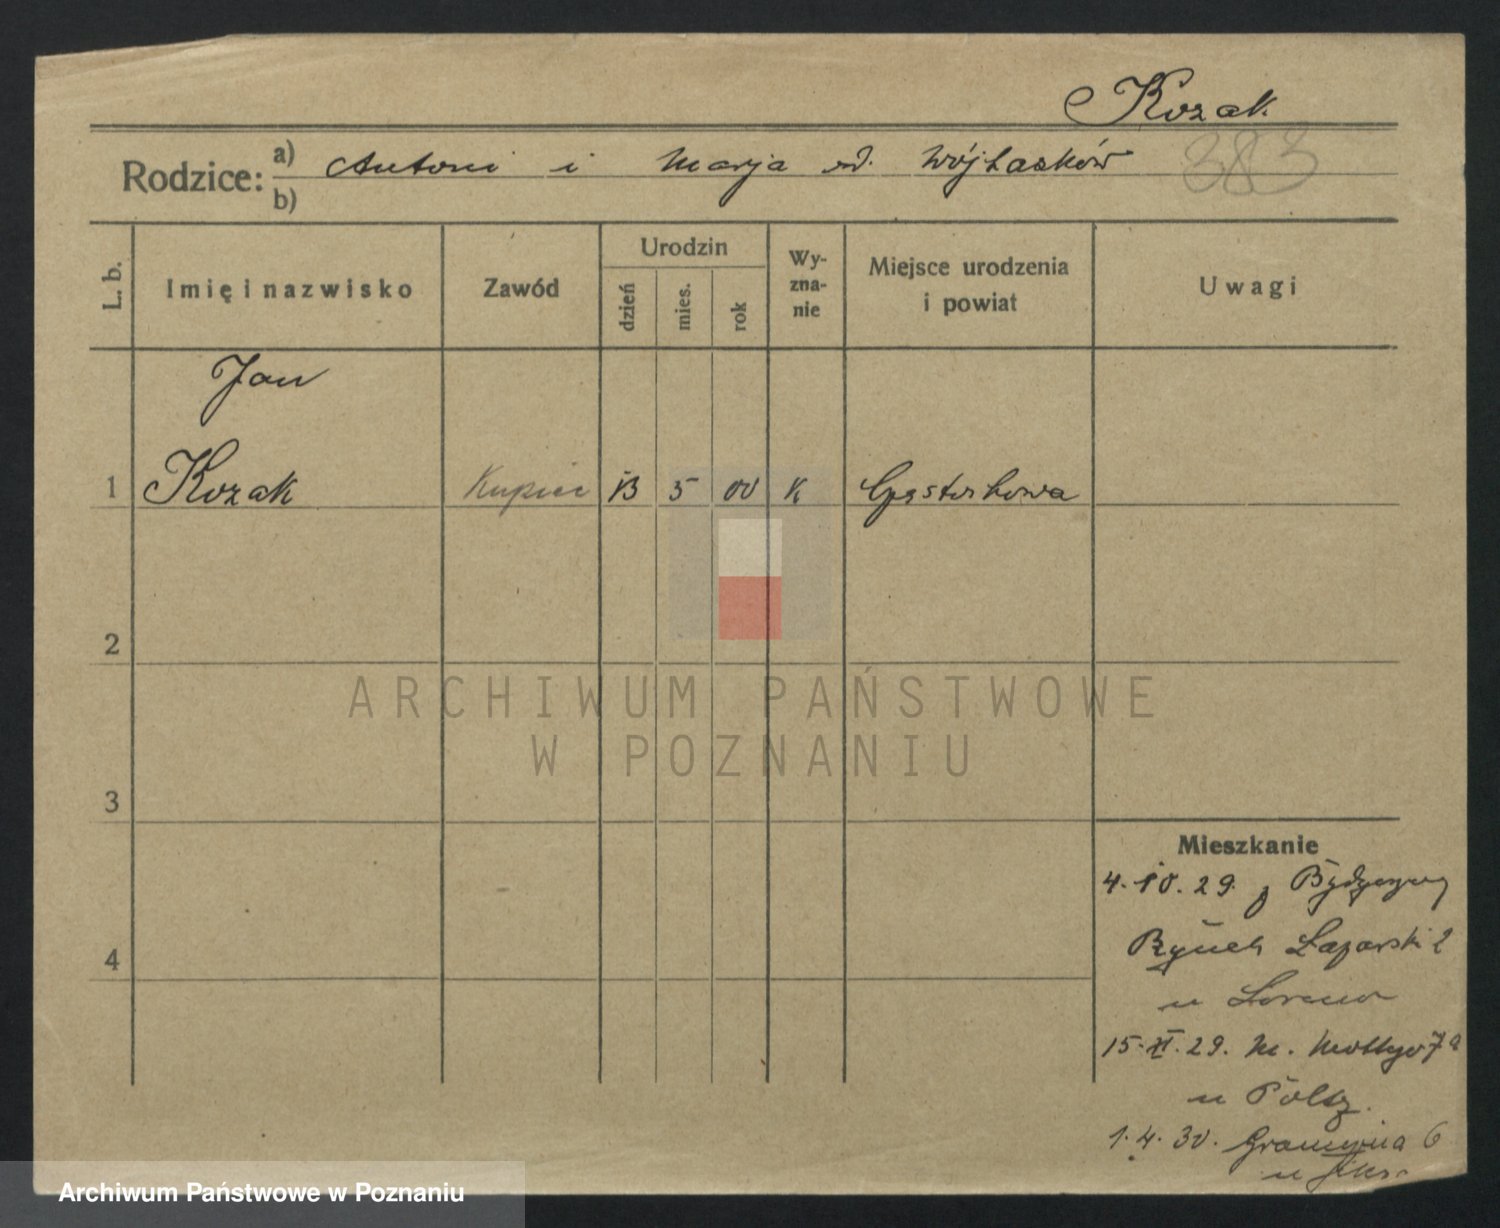 Kozak
Rodzice: a) Antoni i Marja
b)
383
L. b.
Imię i nazwisko
Zawód
Urodzin
dzień
mies.
rok
Wy-
zna-
nie
Miejsce urodzenia
i powiat
Uwagi
Jan
1 Kozak Kupiec 13 5 00 K Częstochowa
2
3
4
ARCHIWUM PAŃSTWOWE
W POZNANIU
Mieszkanie
4.10.29. z Bydgoszczy
Rynek Łazarski 2
u
15.XI.29. M. Mottego 7a
u
1.4.30. 6
u
Archiwum Państwowe w Poznaniu